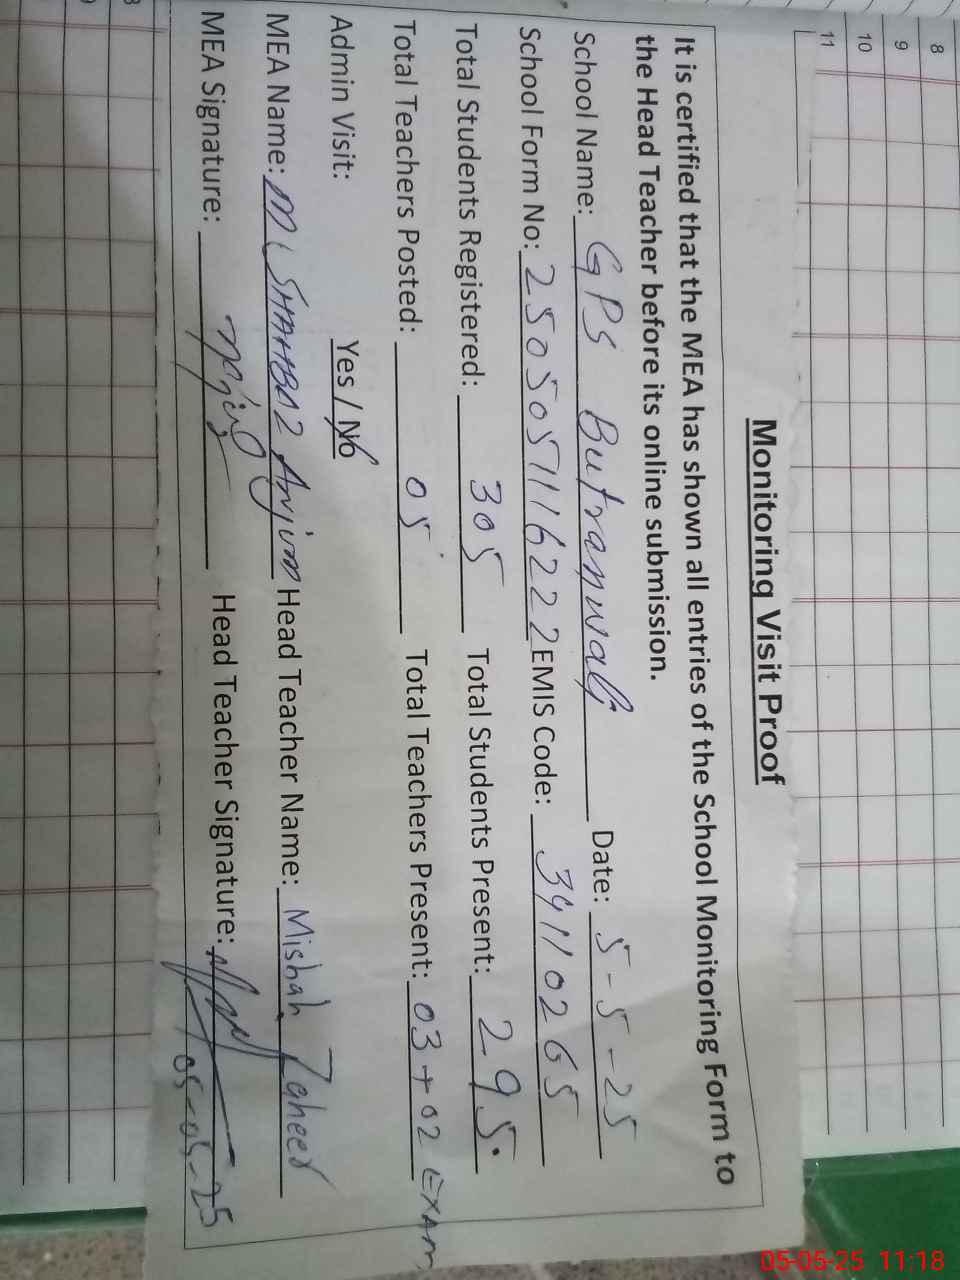 8
9
10
11
Monitoring Visit Proof
It is certified that the MEA has shown all entries of the School Monitoring Form to
the Head Teacher before its online submission.
School Name: GPS Butranwali Date: 5-5-25
School Form No: 2505051116222 EMIS Code: 34110265
Total Students Registered: 305 Total Students Present: 295
Total Teachers Posted: 05 Total Teachers Present: 03+02 EXAM
Admin Visit: Yes / No
MEA Name: M SHAHBAZ Anjum Head Teacher Name: Misbah Zaheer
MEA Signature: Head Teacher Signature:
05-05-25
05-05-25 11:18